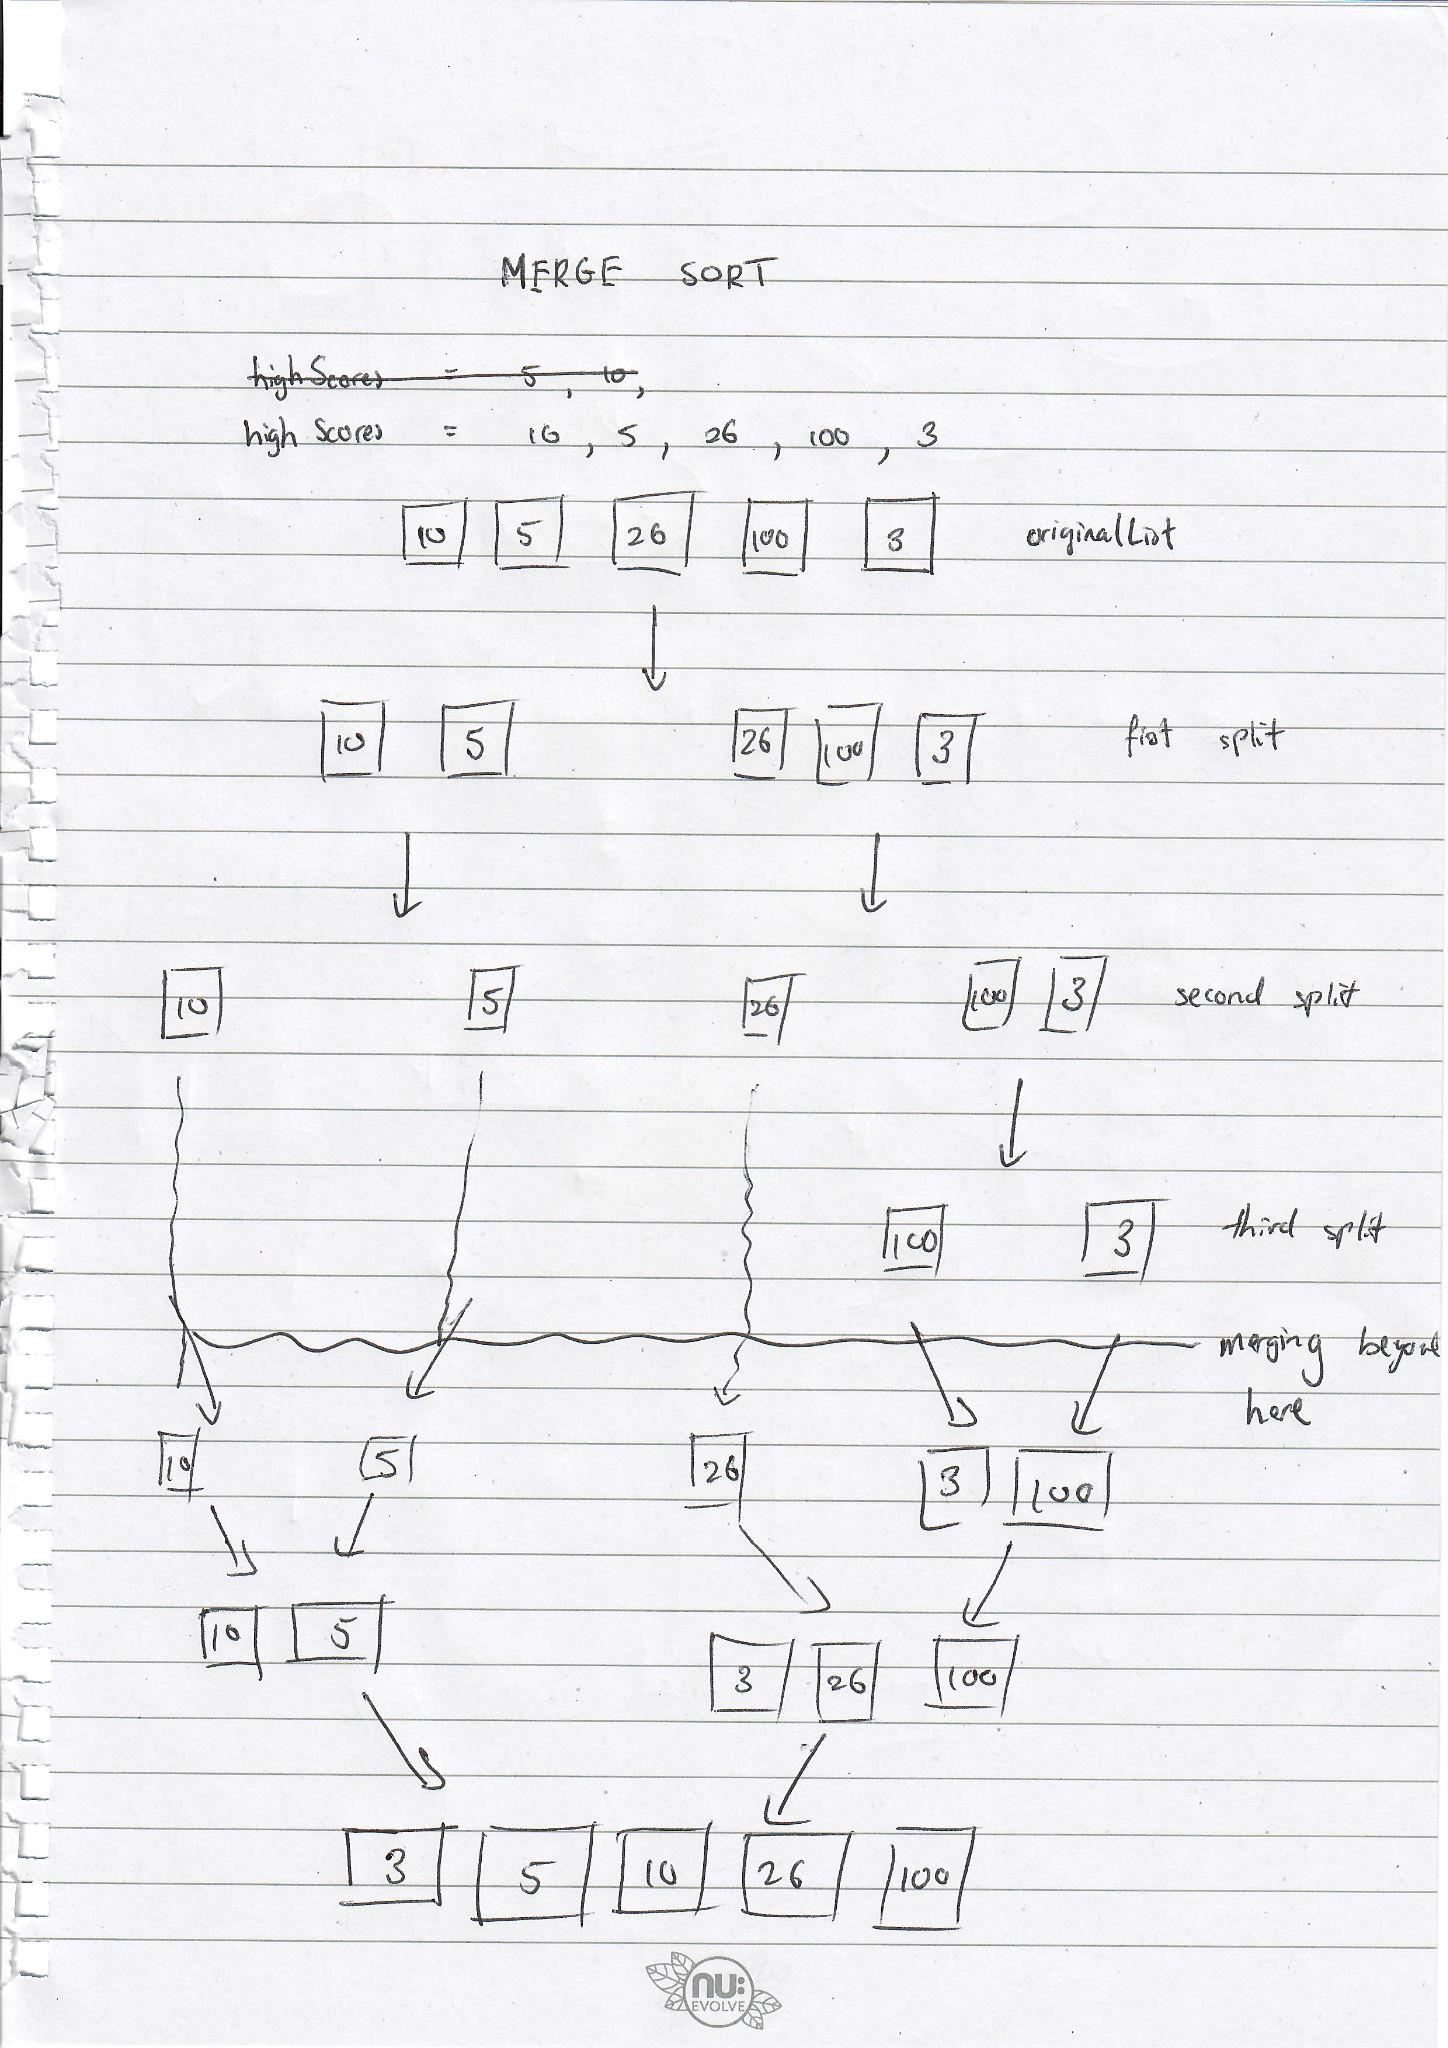 MERGE SORT
high Scores = 5, 10,
high Scores = 10, 5, 26, 100, 3
10 5 26 100 3 original List
10 5 26 100 3 first split
10 5 26 100 3 second split
100 3 third split
merging beyond
here
10 5 26 3 100
10 5 3 26 100
3 5 10 26 100
nu:
EVOLVE